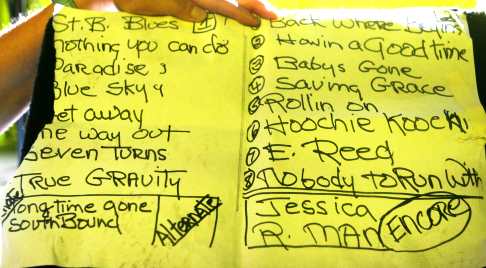 St. B. Blues 4
nothing you can do
Paradise 3
Blue Sky 4
Get away
one way out
Seven Turns
True GRAVITY
long time gone
southBound
Alternate
Back where
② Havin a Good time
③ Babys Gone
④ Saving Grace
⑤ Rollin on
⑥ Hoochie Koochi
⑦ E. Reed
⑧ Nobody to Run With
Jessica
R. MAN
ENCORE